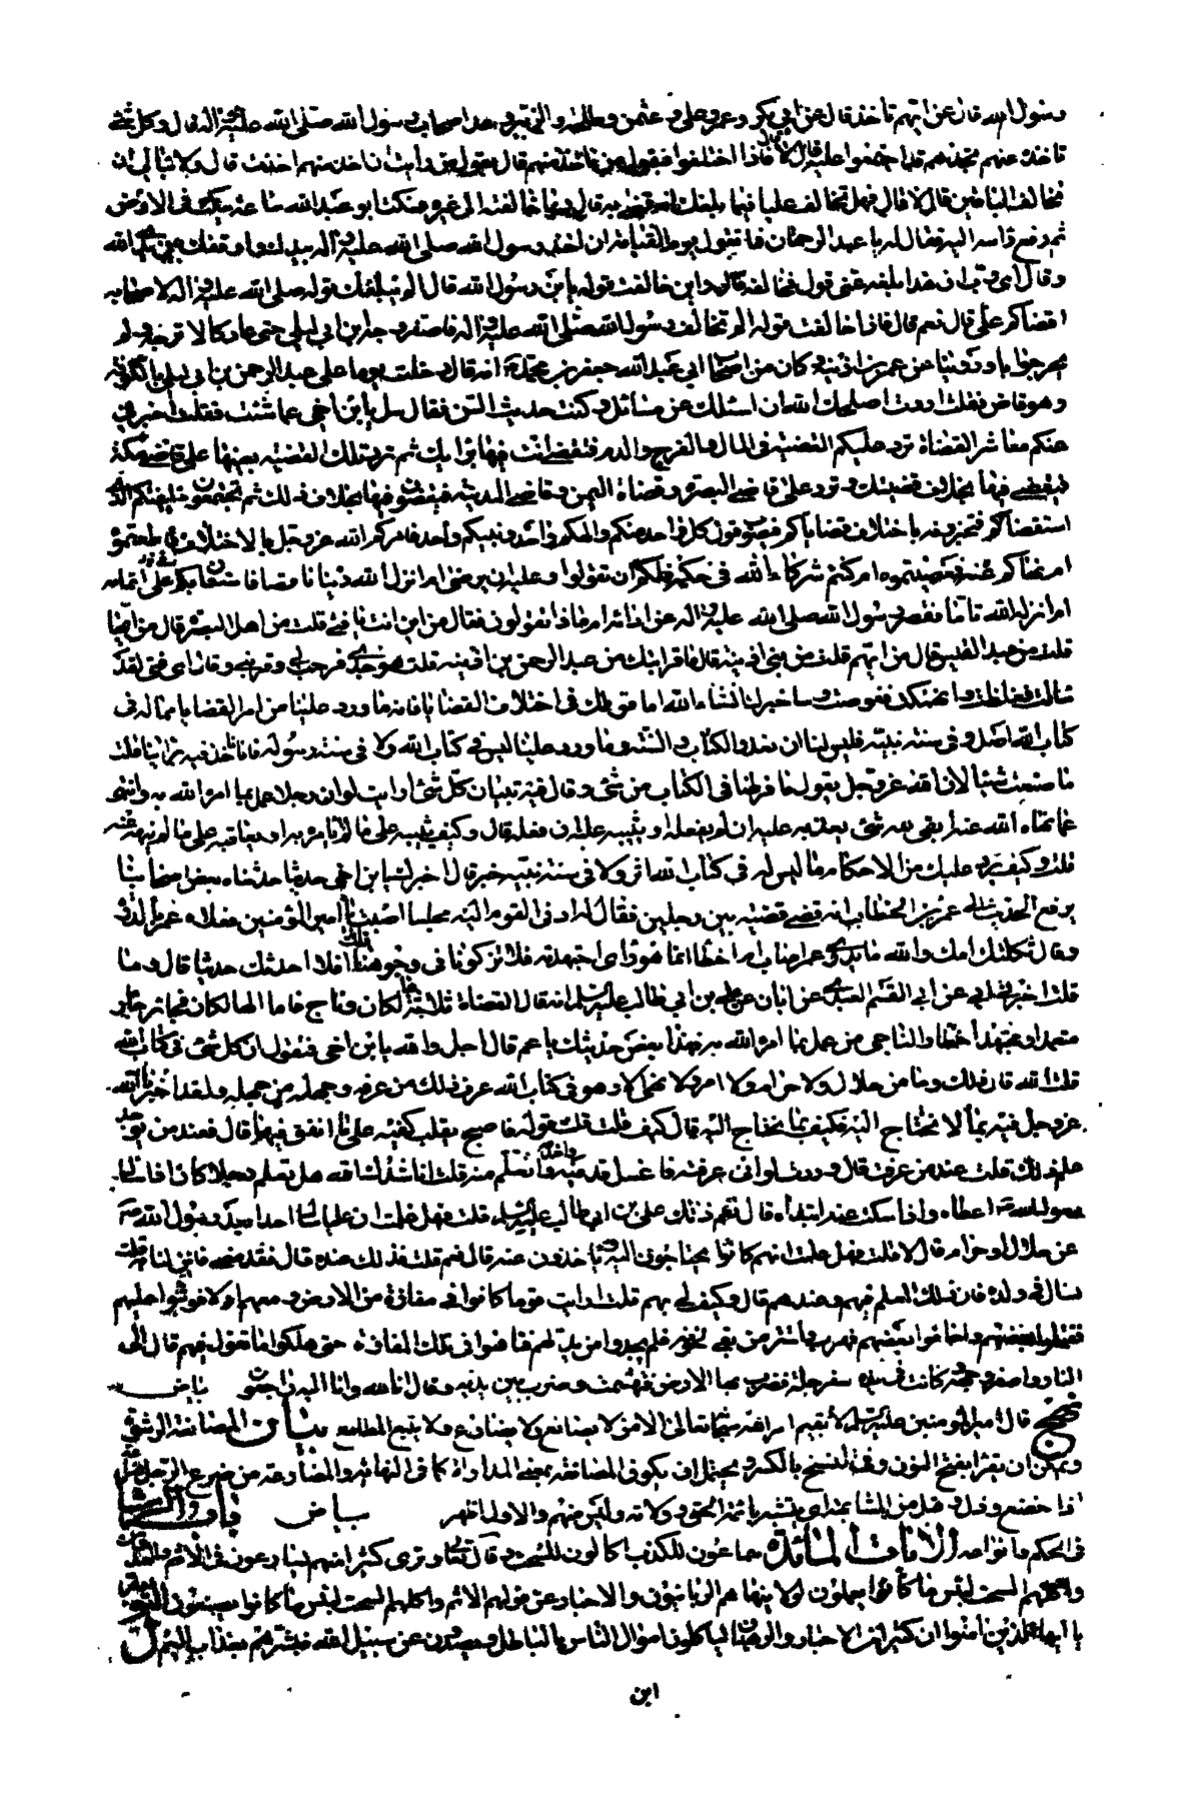 رسول الله قال عن ايهم تأخذ قال عن ابي بكر وعمر وعلي وعثمن وطلحة والزبير وعد اصحاب رسول الله صلى الله عليه وآله قال وكل شئ
تأخذ عنهم تجدهم قد اجتمعوا عليه قال لا قال فاذا اختلفوا فبقول من تأخذ منهم قال بقول من رأيت ان اخذ منهم اخذت قال ولا تبالي ان
تخالف الباقين قال لا قال فهل تخالف عليا فيما بلغك انه قضى به قال ربما خالفته الى غيره منهم فنكت ابو عبد الله ساعة ينكت في الارض
ثم رفع رأسه اليه فقال له يا عبد الرحمان فما تقول يوم القيامة ان اخذ رسول الله صلى الله عليه وآله بيدك واوقفك بين يدي الله
وقال اى رب ان هذا بلغه عنى قول فخالفه قال واين خالفت قوله يابن رسول الله قال الم يبلغك قوله صلى الله عليه وآله لاصحابه
اقضاكم علي قال نعم قال فاذا خالفت قوله الم تخالف رسول الله صلى الله عليه وآله فاصفر وجه ابن ابي ليلى حتى عاد كالاترجة ولم
يحر جوابا وروينا عن عمر بن اذينه وكان من اصحاب ابي عبد الله جعفر بن محمد انه قال دخلت يوما على عبد الرحمن بن ابي ليلى بالكوفة
وهو قاض فقلت اردت اصلحك الله ان اسئلك عن مسائل وكنت حديث السن فقال سل يابن اخي عما شئت فقلت اخبرني
عنكم معاشر القضاة ترد عليكم القضية في المال والفرج والدم فتقضي انت فيها برايك ثم ترد تلك القضيه بعينها على قاضي مكة
فيقضي فيها بخلاف قضيتك وترد على قاضي البصرة وقضاة اليمن وقاضي المدينة فيقضون فيها بخلاف ذلك ثم تجتمعون عند خليفتكم الذي
استقضاكم فتخبرونه باختلاف قضاياكم فيصوب قول كل واحد منكم والهكم واحد ونبيكم واحد فامركم الله عز وجل بالاختلاف فاطعتموه
ام نهاكم عنه فعصيتموه ام كنتم شركاء الله في حكمه فلكم ان تقولوا وعليه ان يرضى ام انزل الله دينا ناقصا فاستعان بكم على اتمامه
ام انزله الله تاما فقصر رسول الله صلى الله عليه وآله عن ادائه ام ماذا تقولون فقال من اين انت يا فتى قلت من اهل البصرة قال من ايها
قلت من عبد القيس قال من ايهم قلت من بني اذينة قال ما قرابتك من عبد الرحمن بن اذينه قلت هو جدى فرحب لي وقربني وقال اى فتى لقد
سالت فغلظت وانهمكت فعوصت وساخبرك انشاء الله اما قولك في اختلاف القضايا فانه ما ورد علينا من امر القضايا مما له في
كتاب الله اصل وفي سنة نبيه فليس لنا ان نعدو الكتاب والسنة وما ورد علينا ليس في كتاب الله ولا في سنة رسوله فانا نأخذ فيه براينا قلت
ما صنعت شيئا لان الله عز وجل يقول ما فرطنا في الكتاب من شئ وقال فيه تبيان كل شئ ارايت لو ان رجلا عمل بما امر الله به وانتهى
عما نهاه الله عنه ابقي لله شئ يعذبه عليه ان لم يفعله او يثيبه عليه ان فعله قال وكيف يثيبه على ما لم يأمر به او يعاقبه على ما لم ينهه عنه
قلت وكيف يرد عليك من الاحكام ما ليس له في كتاب الله اثر ولا في سنة نبيه خبر قال اخبرك يابن اخي حديثا حدثناه بعض اصحابنا
يرفع الحديث الى عمر بن الخطاب انه قضى قضية بين رجلين فقال له ادنى القوم اليه مجلسا اصبت يا امير المؤمنين فعلاه عمر بالدرة
وقال ثكلتك امك والله ما يدرى عمر اصاب ام اخطا انما هو راى اجتهدته فلا تزكونا في وجوهنا قلت افلا احدثك حديثا قال وما
قلت اخبرني ابي عن ابي القسم العبدي عن ابان عن علي بن ابي طالب عليه السلم انه قال القضاة ثلاثة هالكان وناج فاما الهالكان فجائر جار
متعمدا ومجتهد اخطا والناجي من عمل بما امر الله به فهذا نقض حديثك يا عم قال اجل والله يابن اخي فتقول ان كل شئ في كتاب الله
قلت الله قال ذلك وما من حلال ولا حرام ولا امر ولا نهى الا وهو في كتاب الله عرف ذلك من عرفه وجهله من جهله ولقد اخبرنا الله
عز وجل فيه بما لا نحتاج اليه فكيف بما نحتاج اليه قال كيف قلت قلت قوله فاصبح يقلب كفيه على ما انفق فيها قال فعند من يوجد
علم ذلك قلت عند من عرفت قال وددت لو اني عرفته فاغسل قدميه واخدمه واتعلم منه قلت اناشدك الله هل تعلم رجلا كان اذا سال
رسول الله ص اعطاه واذا سكت عنه ابتداه قال نعم ذلك علي بن ابي طالب عليه السلم قلت فهل علمت ان عليا سال احدا بعد رسول الله ص
عن حلال او حرام قال لا قلت فهل علمت انهم كانوا يحتاجون اليه ويأخذون عنه قال نعم قلت فذلك عنده قال فقد مضى فاين لنا به قلت
تسال في ولده فان ذلك العلم فيهم وعندهم قال وكيف لي بهم قلت ارايت قوما كانوا في مفازة من الارض ومعهم ادلاء فوثبوا عليهم
فقتلوا بعضهم واخافوا بعضهم فهرب واستتر من بقي لخوفه فلم يجدوا من يدلهم فتاهوا في تلك المفازة حتى هلكوا ما تقول فيهم قال الى
النار واصفر وجهه وكانت في يده سفرجلة فضرب بها الارض فتهشمت وضرب بين يديه وقال انا لله وانا اليه راجعون بياض
نهج قال امير المؤمنين عليه السلم لا يقيم امر الله سبحانه تعالى الا من لا يصانع ولا يضارع ولا يتبع المطامع بيان المصانعة الرشوة
ويمكن ان يقرأ بفتح النون وفي النسخ بالكسر ويحتمل ان يكون المصانعه بمعنى المداراة كما في النهاية والمضارعة من ضرع الرجل
اذا خضع وذل وقيل من المشابهة اى يتشبه بائمة الحق وولاته وليس منهم والاول اظهر بياض باب الرشا
في الحكم وانواعه الايات المائدة سماعون للكذب اكالون للسحت وقال تعالى وترى كثيرا منهم يسارعون في الاثم والعدوان
واكلهم السحت لبئس ما كانوا يعملون لولا ينهاهم الربانيون والاحبار عن قولهم الاثم واكلهم السحت لبئس ما كانوا يصنعون التوبة
يا ايها الذين آمنوا ان كثيرا من الاحبار والرهبان لياكلون اموال الناس بالباطل ويصدون عن سبيل الله فبشرهم بعذاب اليم ل
ابن